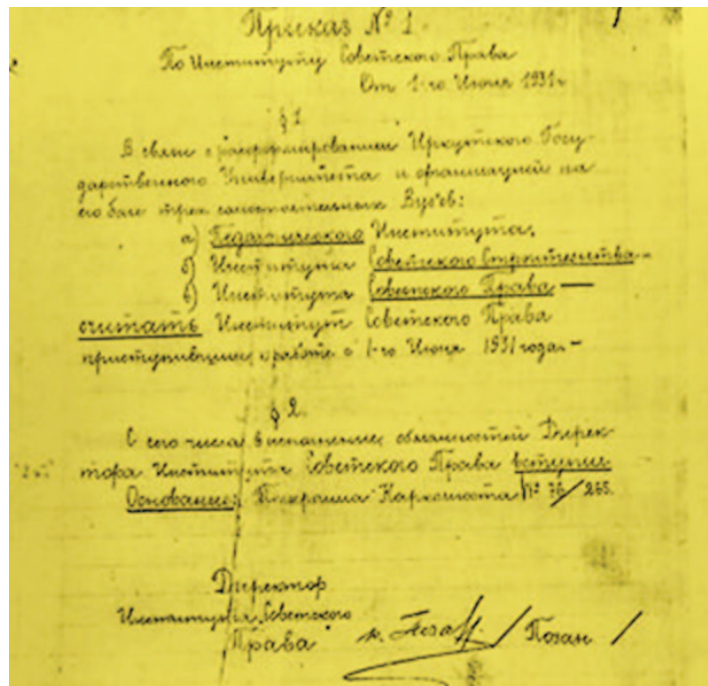 Приказ № 1.
По Институту Советского Права
От 1-го Июня 1931 г.
§ 1
В связи с расформированием Иркутского Госу-
дарственного Университета и организацией на
его базе трех самостоятельных Вуз'ов:
а) Педагогического Института,
б) Института Советского Строительства
в) Института Советского Права —
считать Институт Советского Права
приступившим к работе с 1-го Июня 1931 года. —
§ 2.
С сего числа в исполнение обязанностей Дирек-
тора Института Советского Права вступил
Основание: Наркомюста № 76/265.
Директор
Института Советского
Права
/ Позан /